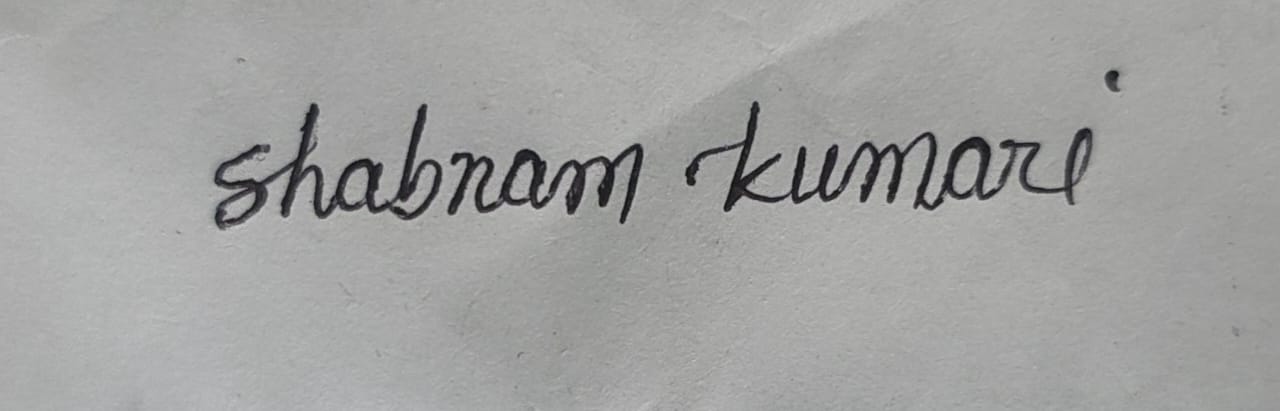 shabnam kumari